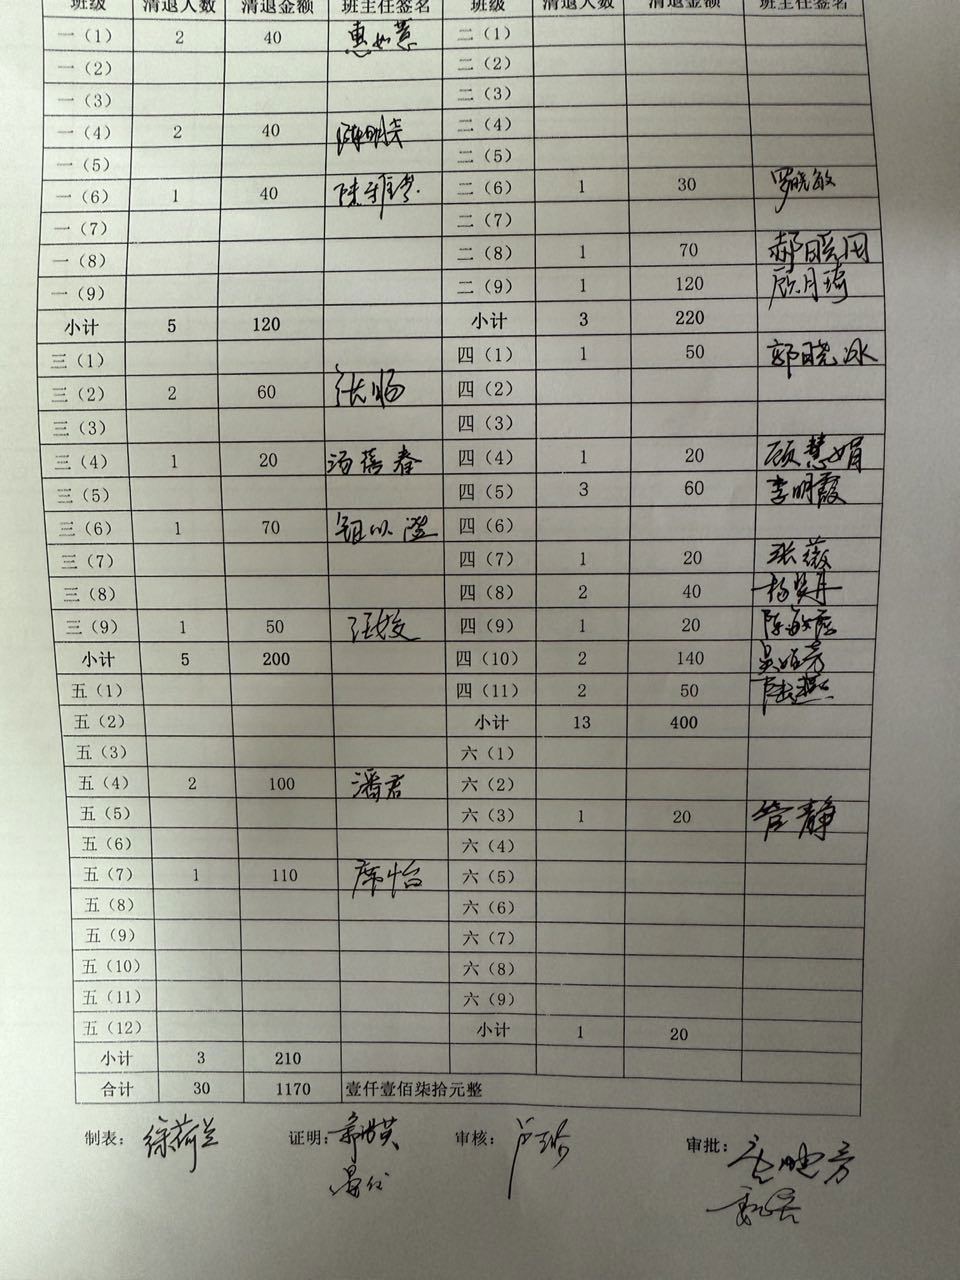 班级 清退人数 清退金额 班主任签名 班级 清退人数 清退金额 班主任签名
一（1） 2 40 惠如薏 二（1）
一（2） 二（2）
一（3） 二（3）
一（4） 2 40 陈明芳 二（4）
一（5） 二（5）
一（6） 1 40 陈雅芳 二（6） 1 30 罗晓敏
一（7） 二（7）
一（8） 二（8） 1 70 郝晓田
一（9） 二（9） 1 120 顾月琦
小计 5 120 小计 3 220
三（1） 四（1） 1 50 郭晓冰
三（2） 2 60 张旸 四（2）
三（3） 四（3）
三（4） 1 20 汤蓓春 四（4） 1 20 顾慧娟
三（5） 四（5） 3 60 李明霞
三（6） 1 70 四（6）
三（7） 四（7） 1 20 张薇
三（8） 四（8） 2 40 杨
三（9） 1 50 汪姣 四（9） 1 20 陈敏
小计 5 200 四（10） 2 140 吴
五（1） 四（11） 2 50 陆燕
五（2） 小计 13 400
五（3） 六（1）
五（4） 2 100 潘君 六（2）
五（5） 六（3） 1 20 管静
五（6） 六（4）
五（7） 1 110 席怡 六（5）
五（8） 六（6）
五（9） 六（7）
五（10） 六（8）
五（11） 六（9）
五（12） 小计 1 20
小计 3 210
合计 30 1170 壹仟壹佰柒拾元整
制表： 徐荷兰 证明： 审核： 审批：